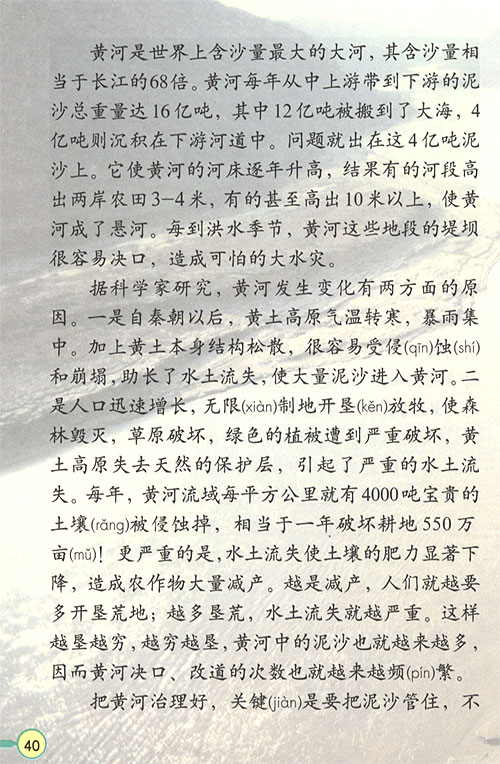 黄河是世界上含沙量最大的大河，其含沙量相
当于长江的68倍。黄河每年从中上游带到下游的泥
沙总重量达16亿吨，其中12亿吨被搬到了大海，4
亿吨则沉积在下游河道中。问题就出在这4亿吨泥
沙上。它使黄河的河床逐年升高，结果有的河段高
出两岸农田3–4米，有的甚至高出10米以上，使黄
河成了悬河。每到洪水季节，黄河这些地段的堤坝
很容易决口，造成可怕的大水灾。
据科学家研究，黄河发生变化有两方面的原
因。一是自秦朝以后，黄土高原气温转寒，暴雨集
中。加上黄土本身结构松散，很容易受侵(qīn)蚀(shí)
和崩塌，助长了水土流失，使大量泥沙进入黄河。二
是人口迅速增长，无限(xiàn)制地开垦(kěn)放牧，使森
林毁灭，草原破坏，绿色的植被遭到严重破坏，黄
土高原失去天然的保护层，引起了严重的水土流
失。每年，黄河流域每平方公里就有4000吨宝贵的
土壤(rǎng)被侵蚀掉，相当于一年破坏耕地550万
亩(mǔ)！更严重的是，水土流失使土壤的肥力显著下
降，造成农作物大量减产。越是减产，人们就越要
多开垦荒地；越多垦荒，水土流失就越严重。这样
越垦越穷，越穷越垦，黄河中的泥沙也就越来越多，
因而黄河决口、改道的次数也就越来越频(pín)繁。
把黄河治理好，关键(jiàn)是要把泥沙管住，不
40